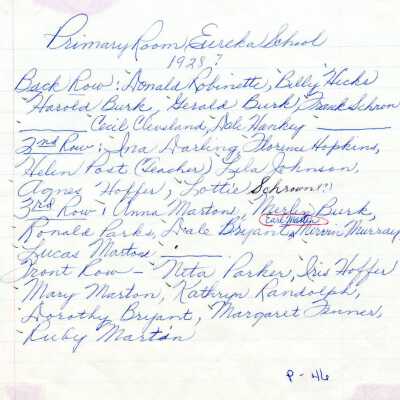 Primary Room Eureka School
1928?
Back Row: Donald Robinette, Billy Hicks
Harold Burk, Gerald Burk, Frank Schron
Cecil Cleveland, Dale Hankey
2nd Row: Ina Darling, Florence Hopkins,
Helen Post (Teacher) Lela Johnson,
Agnes Hoffer, Lottie Schrown(?)
3rd Row: Anna Marton, Merlin Burk,
Earl Martin
Ronald Parks, Dale Bryant, Mervin Murray
Lucas Marton
Front Row - Neta Parker, Iris Hoffer
Mary Marton, Kathryn Randolph,
Dorothy Bryant, Margaret Fenner,
Ruby Martin
P-46